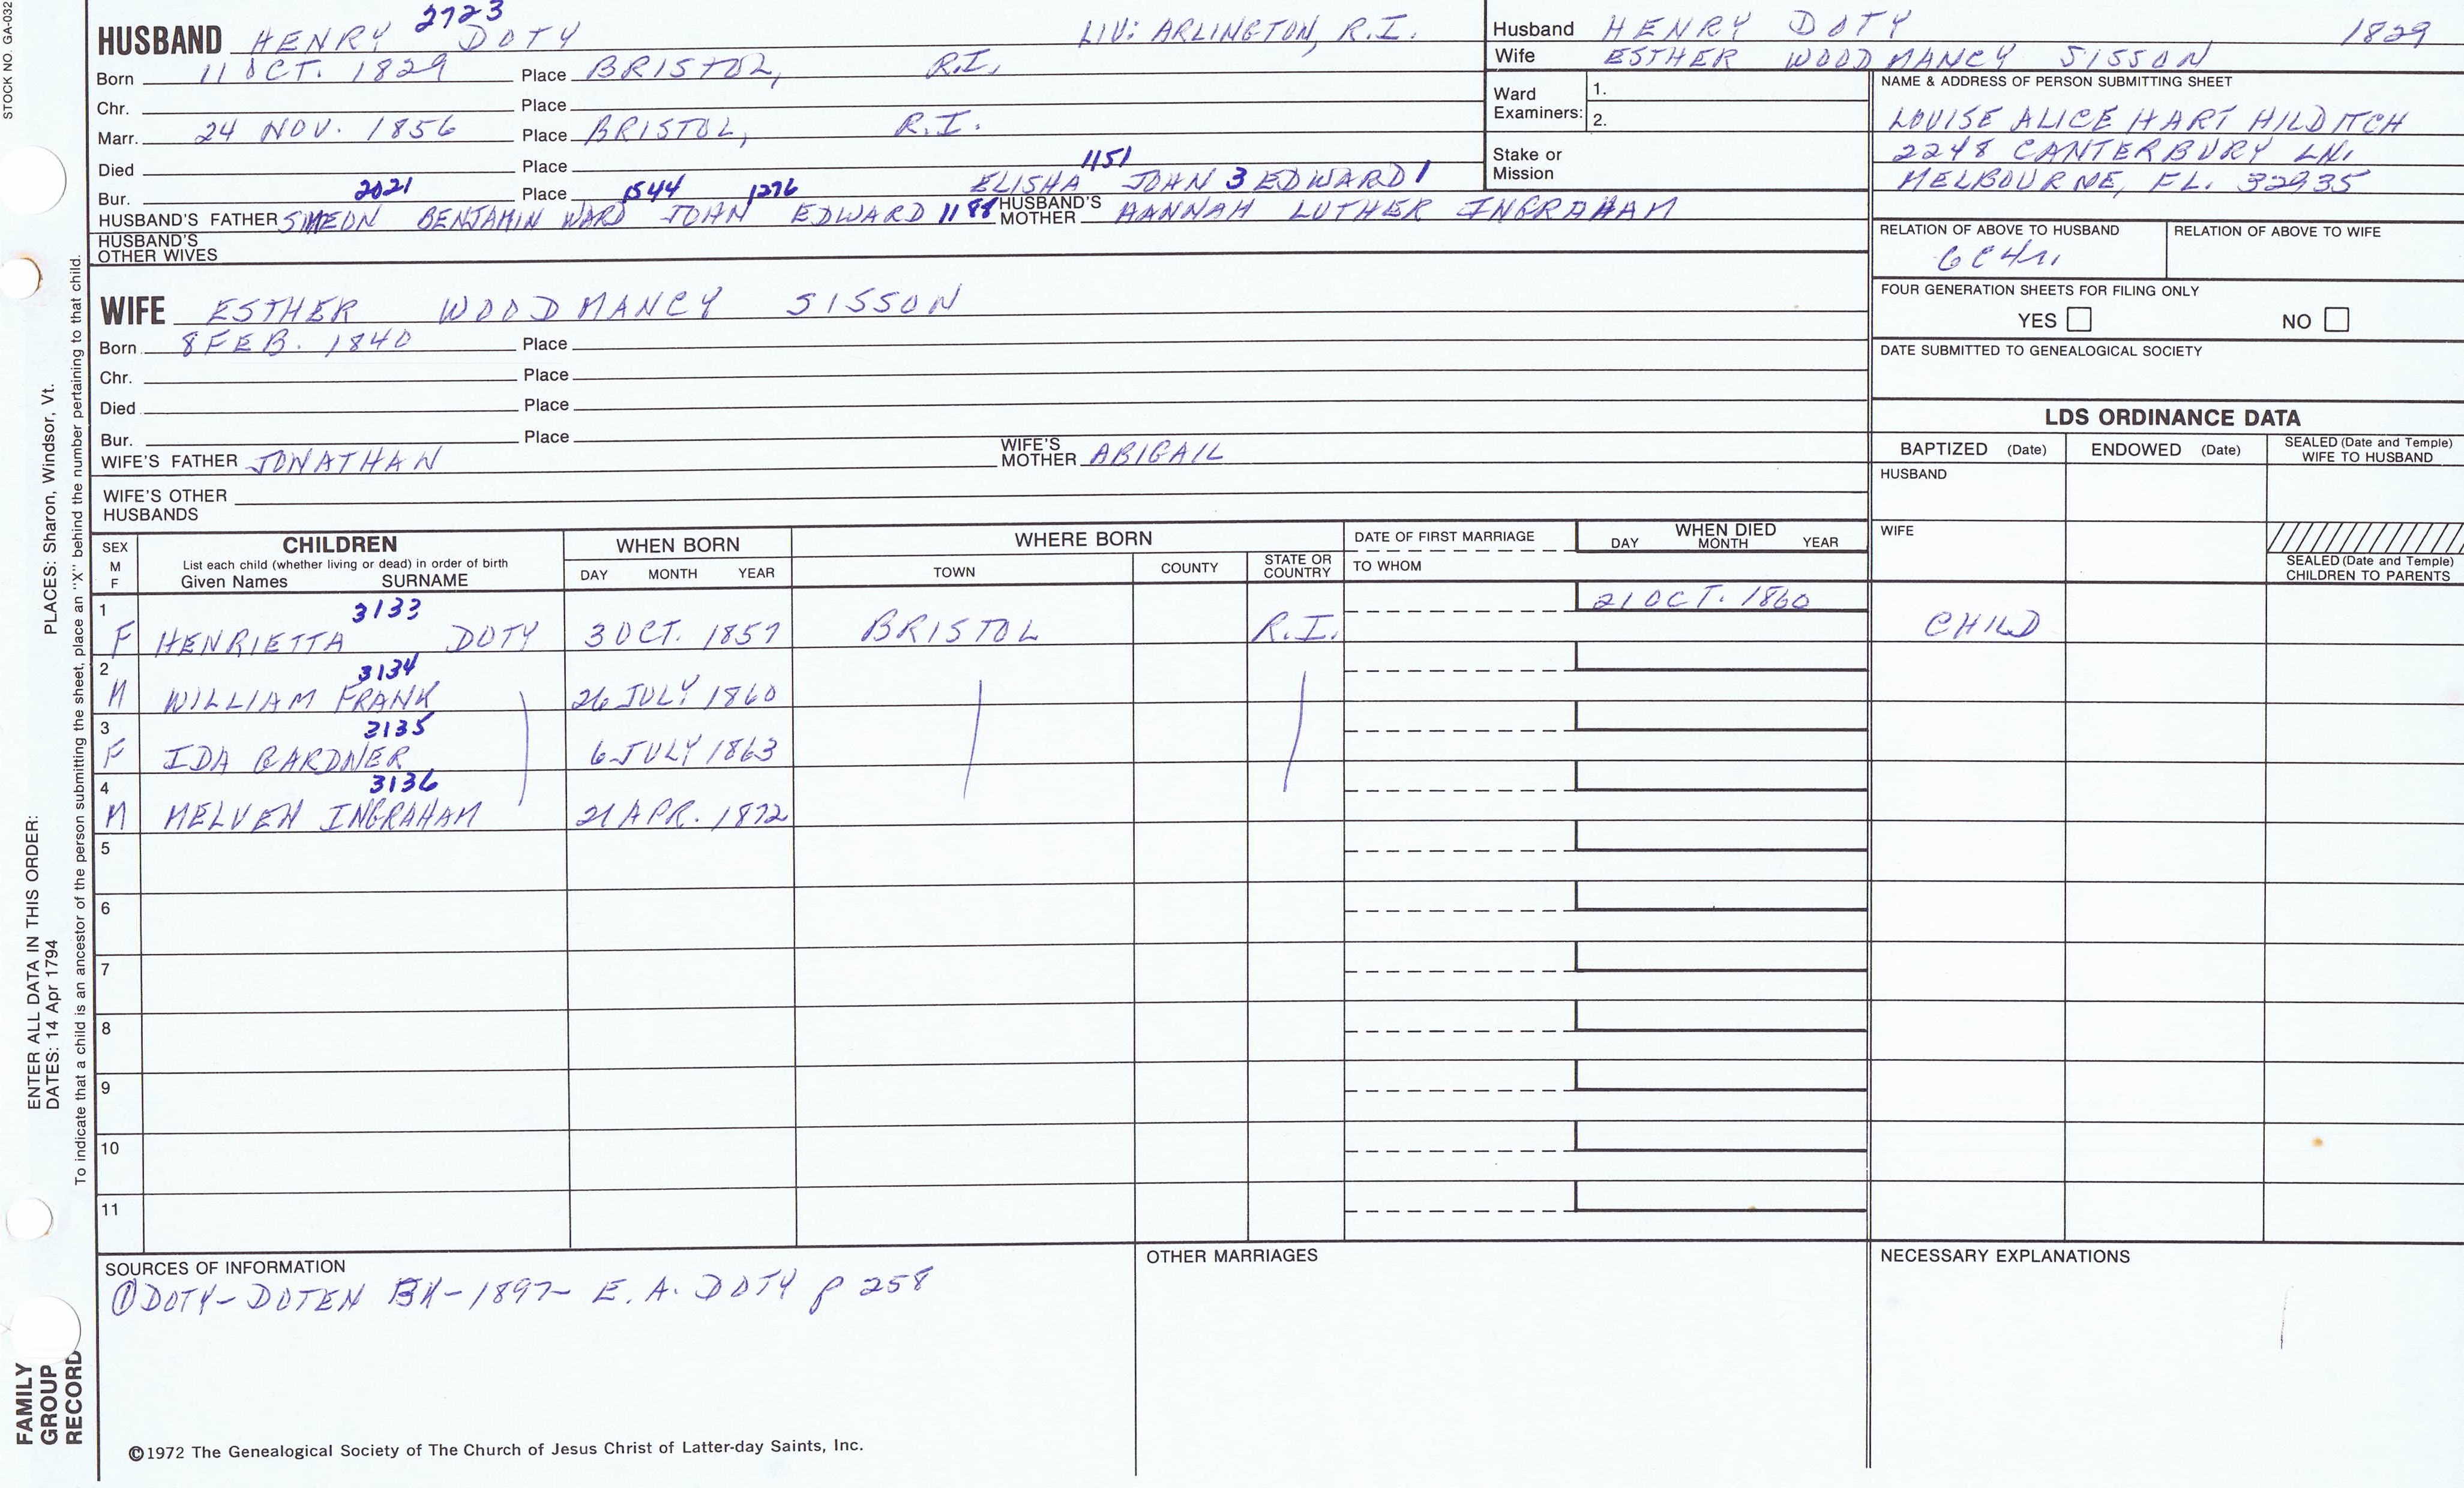 STOCK NO. GA-032
2723
HUSBAND HENRY DOTY LIV: ARLINGTON, R.I.
Born 11 OCT. 1829 Place BRISTOL, R.I.
Chr. Place
Marr. 24 NOV. 1856 Place BRISTOL, R.I.
Died Place
1151
Bur. Place ELISHA JOHN 3 EDWARD 1
2021 1544 1276
HUSBAND'S FATHER SIMEON BENJAMIN WARD JOHN EDWARD 1188 HUSBAND'S MOTHER HANNAH LUTHER INGRAHAM
HUSBAND'S OTHER WIVES
WIFE ESTHER WOODMANCY SISSON
Born 8 FEB. 1840 Place
Chr. Place
Died Place
Bur. Place
WIFE'S FATHER JONATHAN WIFE'S MOTHER ABIGAIL
WIFE'S OTHER HUSBANDS
Husband HENRY DOTY 1829
Wife ESTHER WOODMANCY SISSON
Ward Examiners: 1.
2.
Stake or Mission
NAME & ADDRESS OF PERSON SUBMITTING SHEET
LOUISE ALICE HART HILDITCH
2248 CANTERBURY LN.
MELBOURNE, FL. 32935
RELATION OF ABOVE TO HUSBAND RELATION OF ABOVE TO WIFE
6C4r.
FOUR GENERATION SHEETS FOR FILING ONLY
YES NO
DATE SUBMITTED TO GENEALOGICAL SOCIETY
LDS ORDINANCE DATA
BAPTIZED (Date) ENDOWED (Date) SEALED (Date and Temple) WIFE TO HUSBAND
HUSBAND
WIFE
SEALED (Date and Temple) CHILDREN TO PARENTS
SEX M F
CHILDREN
List each child (whether living or dead) in order of birth
Given Names SURNAME
WHEN BORN
DAY MONTH YEAR
WHERE BORN
TOWN COUNTY STATE OR COUNTRY
DATE OF FIRST MARRIAGE
TO WHOM
WHEN DIED
DAY MONTH YEAR
1 3133 21 OCT. 1860
F HENRIETTA DOTY 3 OCT. 1857 BRISTOL R.I. CHILD
2 3134
M WILLIAM FRANK 26 JULY 1860
3 3135
F IDA GARDNER 6 JULY 1863
4 3136
M MELVEN INGRAHAM 21 APR. 1872
5
6
7
8
9
10
11
SOURCES OF INFORMATION
① DOTY-DOTEN BK-1897- E. A. DOTY p 258
OTHER MARRIAGES
NECESSARY EXPLANATIONS
©1972 The Genealogical Society of The Church of Jesus Christ of Latter-day Saints, Inc.
ENTER ALL DATA IN THIS ORDER:
DATES: 14 Apr 1794 PLACES: Sharon, Windsor, Vt.
To indicate that a child is an ancestor of the person submitting the sheet, place an "X" behind the number pertaining to that child.
FAMILY
GROUP
RECORD